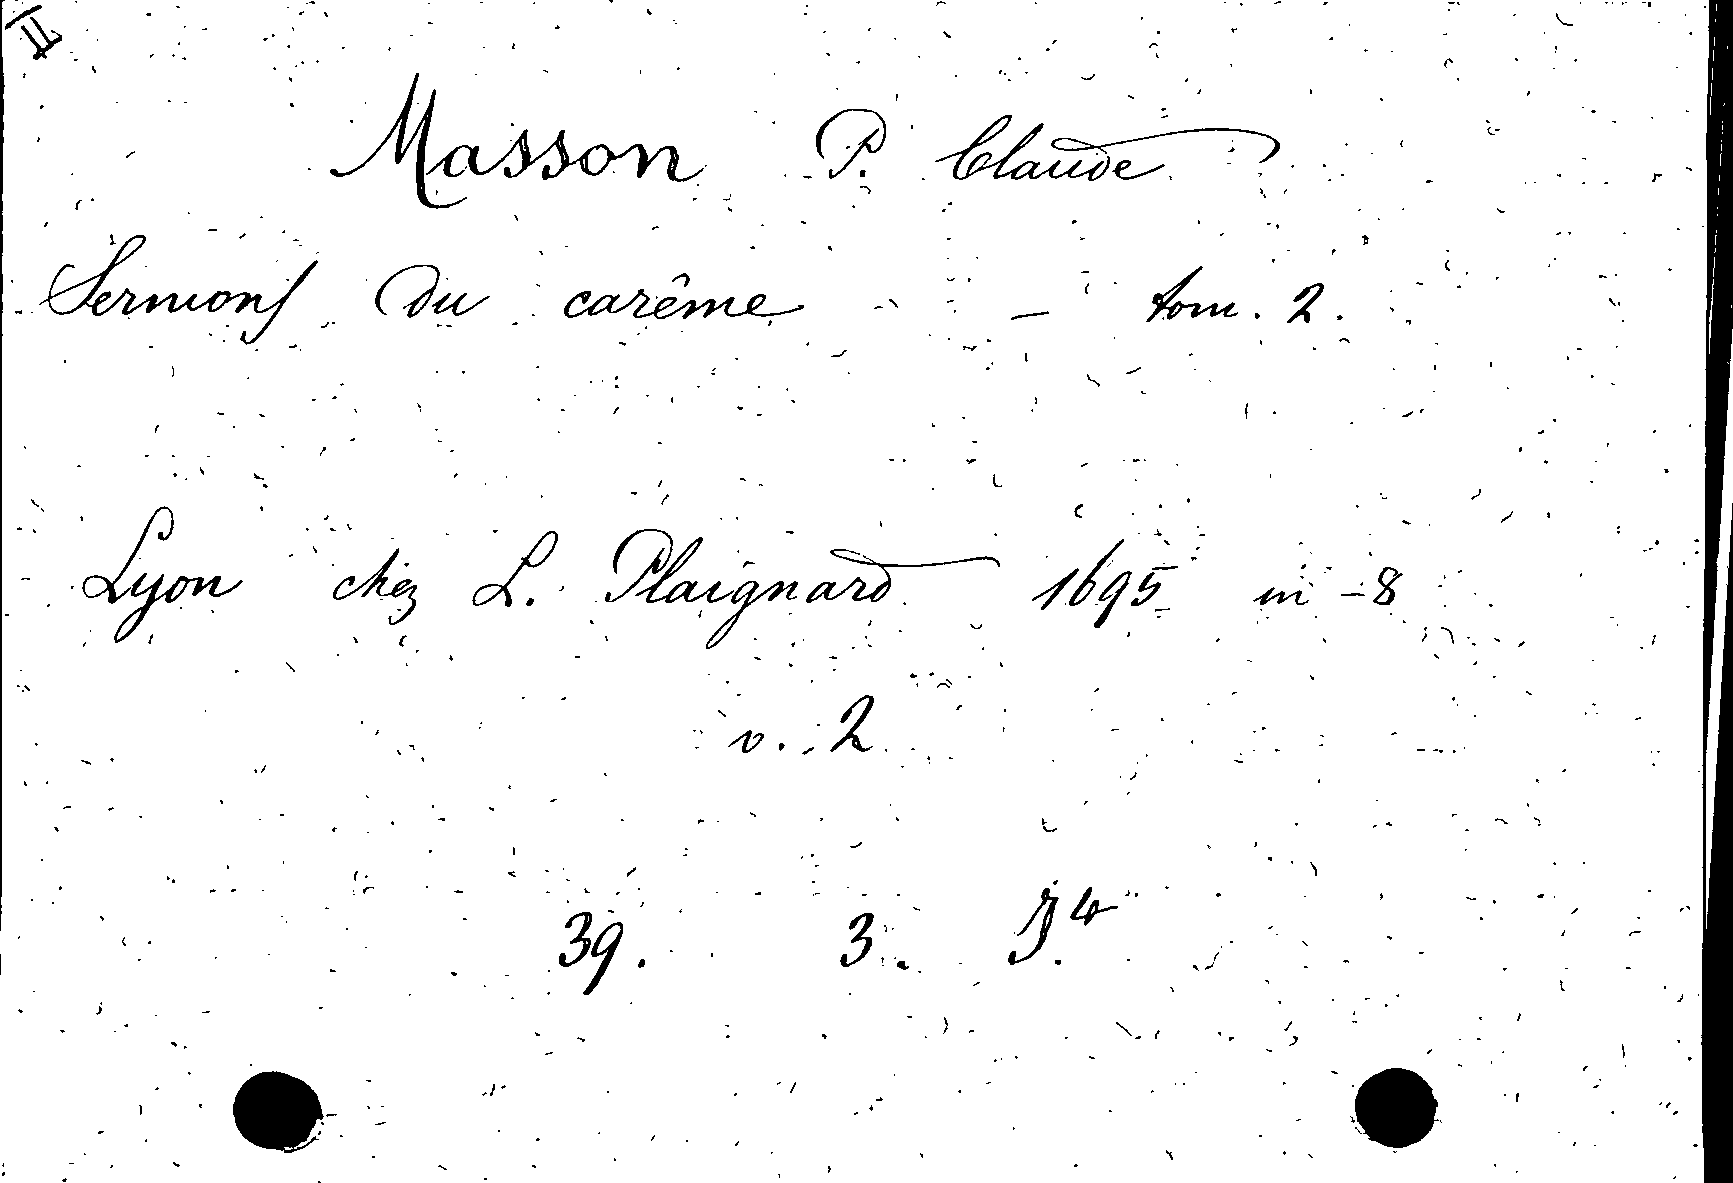 II
Masson P. Claude
Sermons du carême - tom. 2.
Lyon chez L. Plaignard 1695 in-8
v. 2
39. 3.